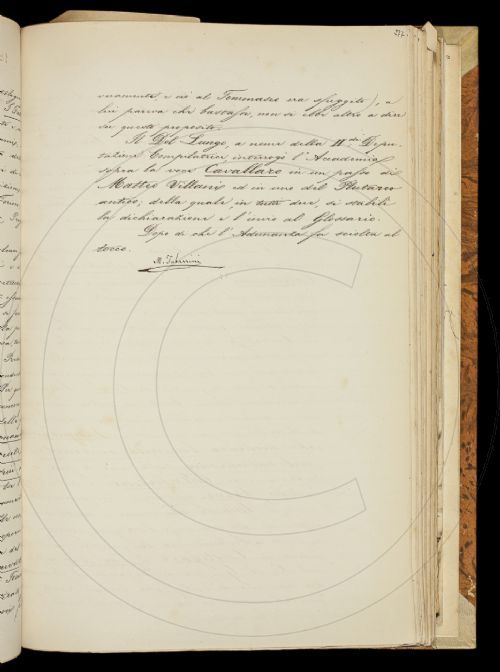 veramente, e ciò al Tommaseo era sfuggito), a
lui pareva che bastasse, non si ebbe altro a dire
su questo proposito.
Il Del Lungo, a nome della IIda Depu-
tazione Compilatrice interrogò l'Accademia
sopra la voce Cavallaro in un passo di
Matteo Villani ed in uno del Plutarco
antico, della quale in tutti due, si stabilì
la dichiarazione e l'invio al Glossario.
Dopo di che l'Adunanza fu sciolta al
tocco.